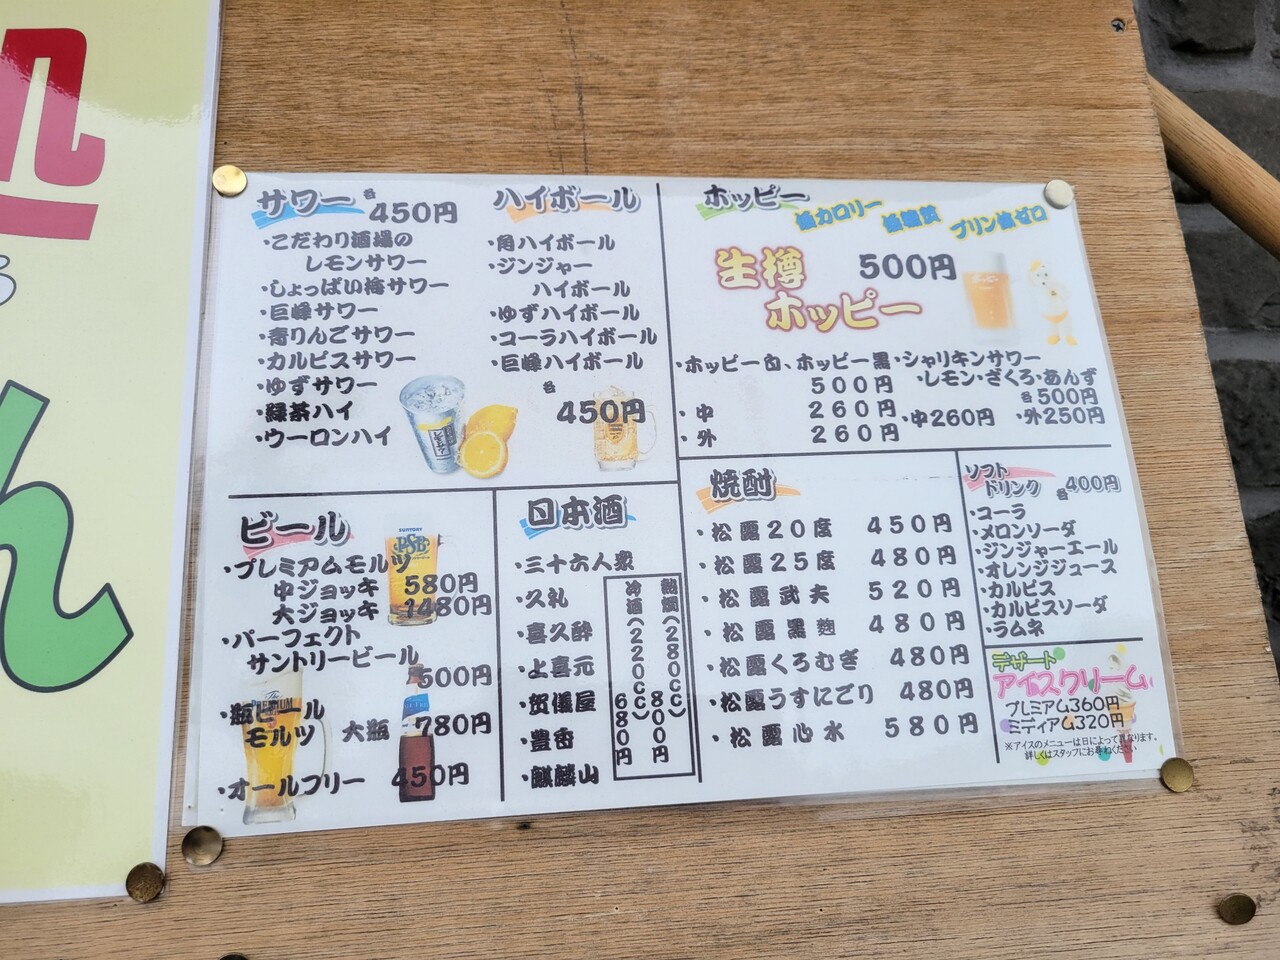 サワー 各450円
・こだわり酒場の
レモンサワー
・しょっぱい梅サワー
・巨峰サワー
・青りんごサワー
・カルピスサワー
・ゆずサワー
・緑茶ハイ
・ウーロンハイ
ハイボール
・角ハイボール
・ジンジャー
ハイボール
・ゆずハイボール
・コーラハイボール
・巨峰ハイボール
各
450円
ホッピー
低カロリー 低糖質 プリン体ゼロ
生樽 500円
ホッピー
・ホッピー白、ホッピー黒
500円
・中 260円
・外 260円
・シャリキンサワー
・レモン・ざくろ・あんず
各500円
・中260円 ・外250円
ビール
・プレミアムモルツ
中ジョッキ 580円
大ジョッキ 1480円
・パーフェクト
サントリービール
500円
・瓶ビール
モルツ 大瓶 780円
・オールフリー 450円
日本酒
・三十六人衆
・久礼
・喜久酔
・上喜元
・賀儀屋
・豊香
・麒麟山
熱燗(280cc)800円
冷酒(220cc)680円
焼酎
・松露20度 450円
・松露25度 480円
・松露武夫 520円
・松露黒麹 480円
・松露くろむぎ 480円
・松露うすにごり 480円
・松露心水 580円
ソフト
ドリンク 各400円
・コーラ
・メロンソーダ
・ジンジャーエール
・オレンジジュース
・カルピス
・カルピスソーダ
・ラムネ
デザート
アイスクリーム
プレミアム360円
ミディアム320円
※アイスのメニューは日によって異なります。
詳しくはスタッフにお尋ねください
ん